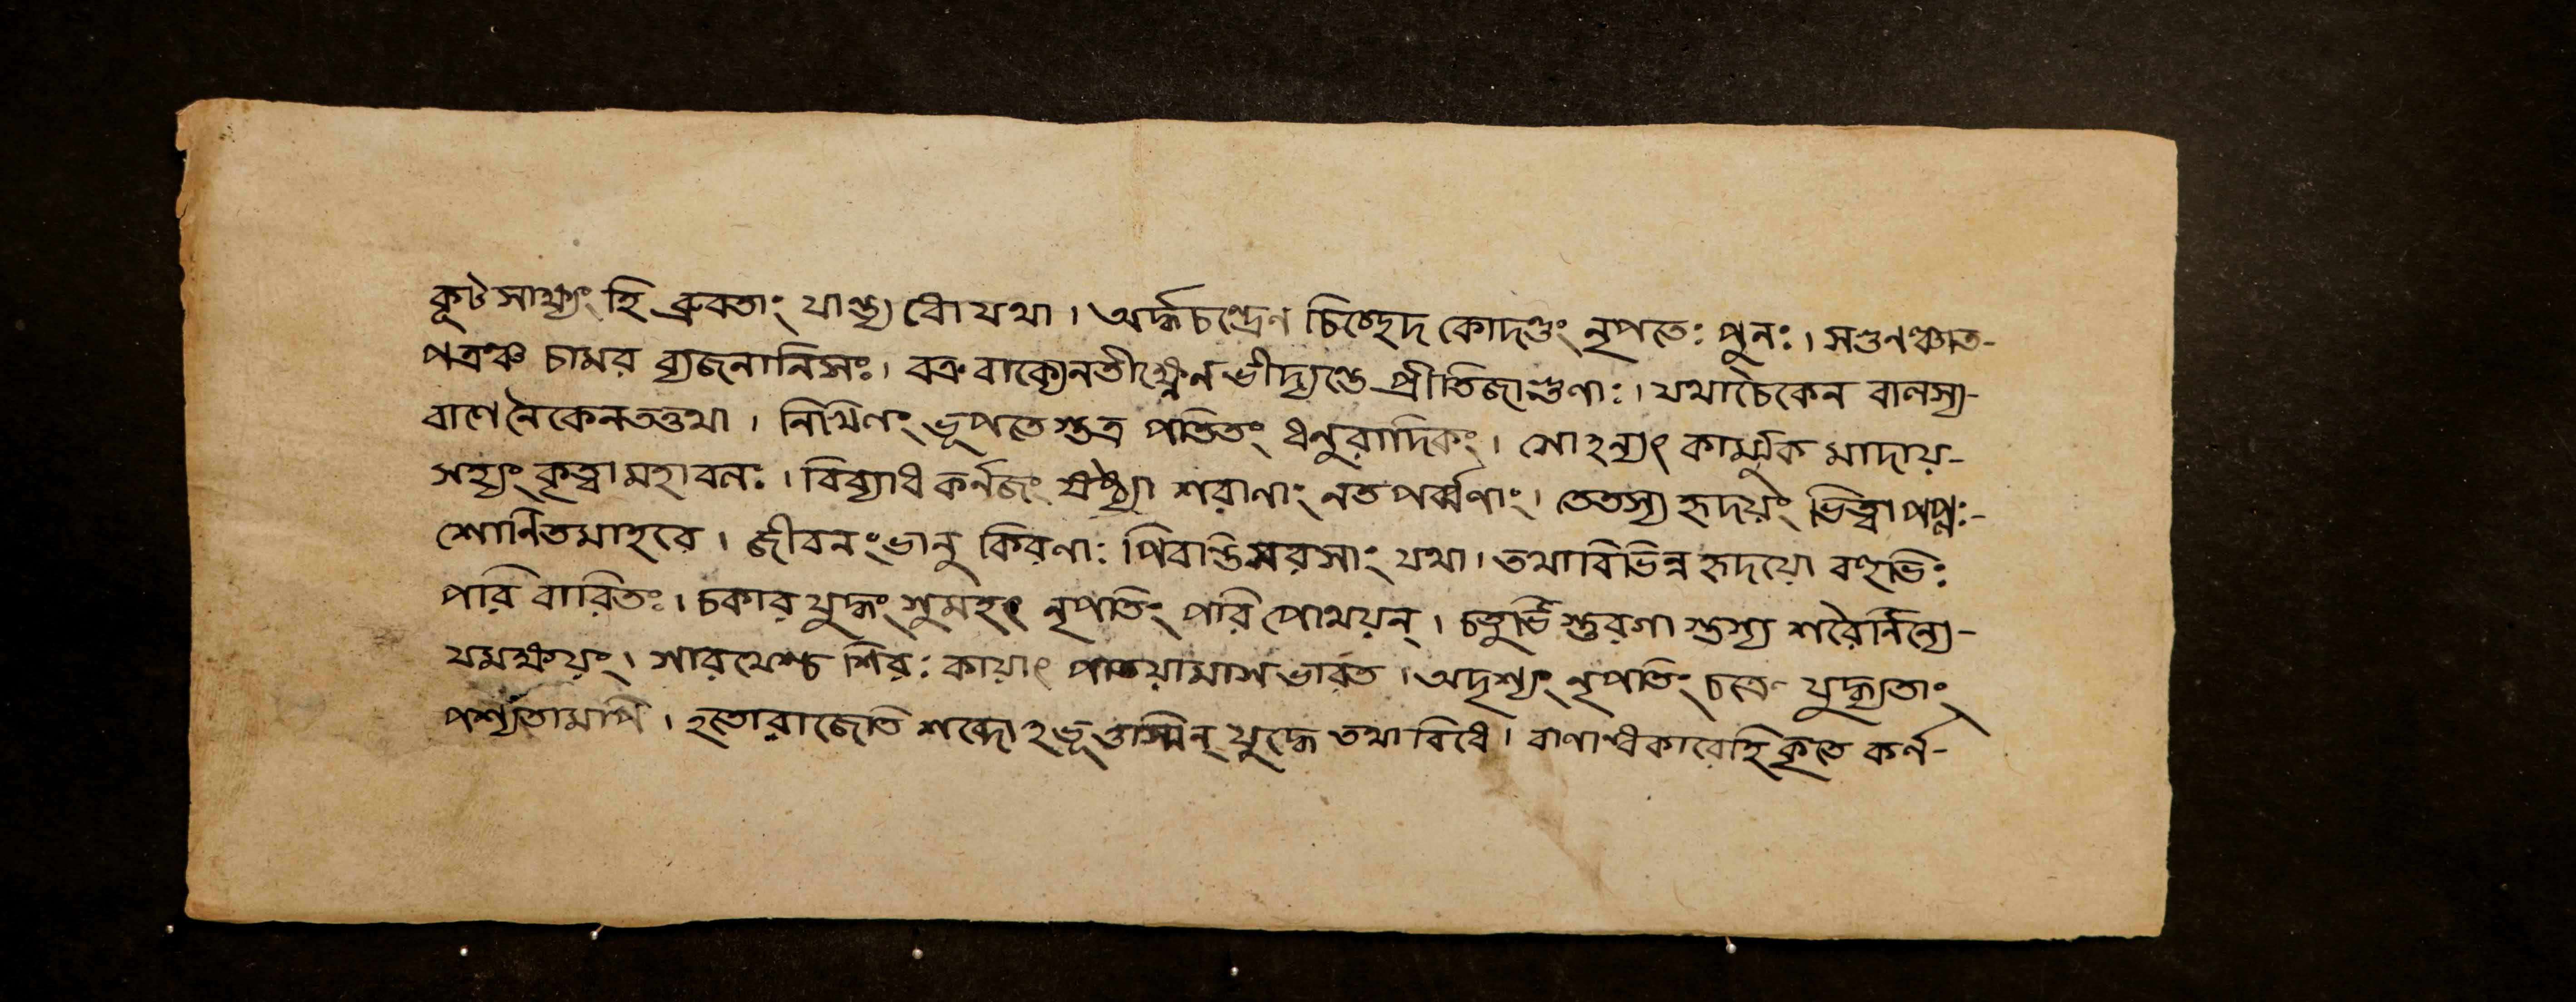 কূটসাক্ষ্যং হি ব্রুবতাং যান্ত্য ধো যথা। অর্দ্ধচন্দ্রেণ চিচ্ছেদ কোদণ্ডং নৃপতেঃ পুনঃ। সগুণঞ্চাত-
পত্রঞ্চ চামর ব্যজনানিসঃ। বক্র বাক্যেনতীক্ষ্ণেন ভীদ্যন্তে প্রীতিজাগুণাঃ। যথাচৈকেন বালস্য-
বাণে নৈকেনতত্তথা। নিখিলং ভূপতেস্তত্র পতিতং ধনুরাদিকং। সোঽন্যৎ কার্ম্মুক মাদায়-
সহ্যং কৃত্বামহাবলঃ। বিব্যাধ কর্নজং ষষ্ঠ্যা শরাণাং নতপর্ব্বণাং। তেতস্য হৃদয়ং ভিত্বা পপুঃ-
শোনিতমাহবে। জীবনংভানু কিরণাঃ পিবন্তিসরসাং যথা। তথাবিভিন্ন হৃদয়ো বহুভিঃ
পরি বারিতঃ। চকার যুদ্ধং সুমহৎ নৃপতিং পরি পোথয়ন্। চতুর্ভি স্তুরগা স্তস্য শরৈর্নিন্যে-
যমক্ষয়ং। সারথেশ্চ শিরঃ কায়াৎ পাতয়ামাস ভারত। অদৃশ্যং নৃপতিং চক্রে যুদ্ধ্যতাং
পশ্যতামপি। হতোরাজেতি শব্দোঽভূত্তস্মিন্ যুদ্ধে তথাবিধে। বাণান্ধকারেহি কৃতে কর্ন-